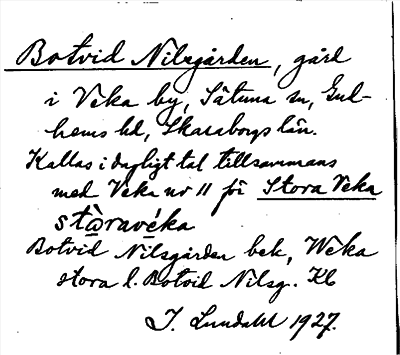 Botvid Nilsgården, gård
i Veka by, Sätuna sn, Gud-
hems hd, Skaraborgs län.
Kallas i dagligt tal tillsammans
med Veka nr 11 för Stora Veka
stàravéka
Botvid Nilsgården bek, Weka
stora l. Botvid Nilsg. Kb
I. Lundahl 1927.